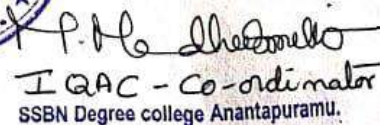 IQAC - Co-ordinator
SSBN Degree college Anantapuramu.